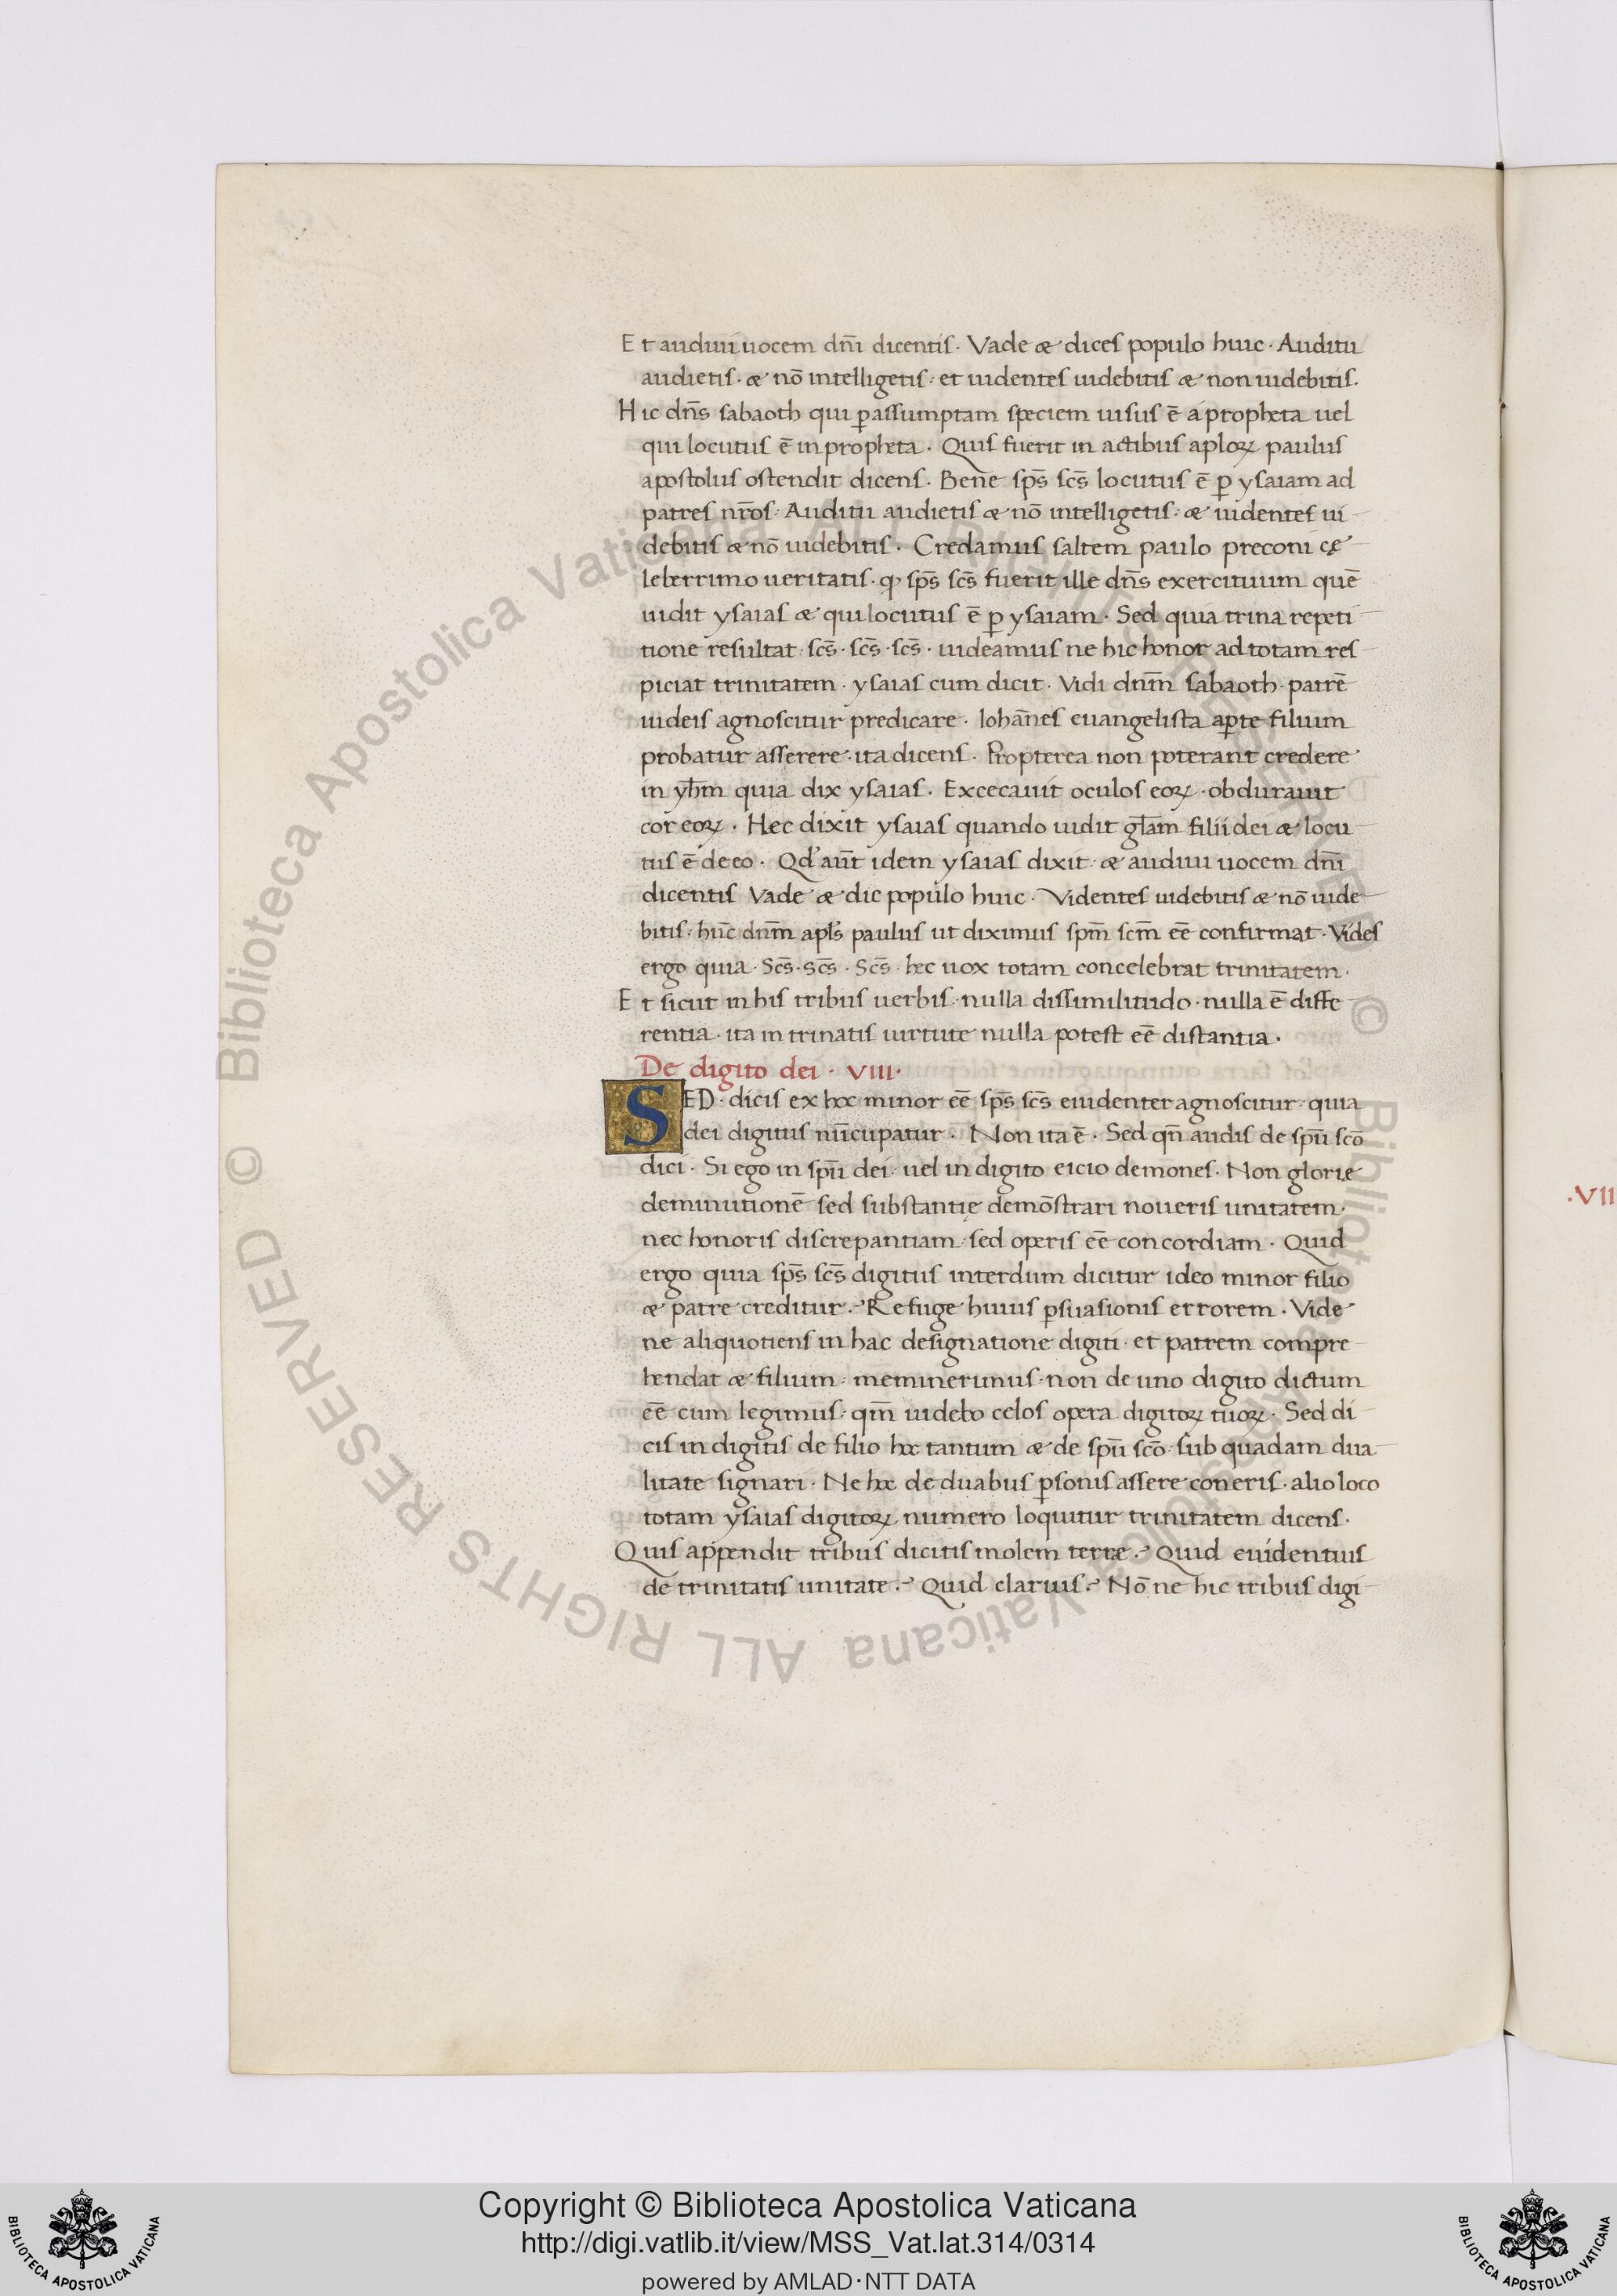 Et audiui uocem dnī dicentis. Vade æ dices populo huic. Auditu
audietis. æ nō intelligetis: et uidentes uidebitis æ non uidebitis.
Hic dn̄s sabaoth qui ꝑ assumptam speciem uisus ē a propheta uel
qui locutus ē in propheta. Quis fuerit in actibus aploꝝ paulus
apostolus ostendit dicens. Bene sp̄s sc̄s locutus ē ꝑ ysaiam ad
patres nr̄os. Auditu audietis æ nō intelligetis: æ uidentes ui
debitis æ nō uidebitis. Credamus saltem paulo preconi cę
leberrimo ueritatis. ꝙ sp̄s sc̄s fuerit ille dn̄s exercituum quē
uidit ysaias æ qui locutus ē ꝑ ysaiam. Sed quia trina repeti
tione resultat. sc̄s. sc̄s. sc̄s. uideamus ne hic honor ad totam res
piciat trinitatem. ysaias cum dicit. Vidi dnm̄ sabaoth. patrē
uideis agnoscitur predicare. Iohānes euangelista aꝑte filium
probatur asserere. ita dicens. Propterea non poterant credere
in yhm̄ quia dix ysaias. Excecauit oculos eoꝝ. obdurauit
cor eoꝝ. Hec dixit ysaias quando uidit gl̄am filii dei æ locu
tus ē de eo. Qd' aūt idem ysaias dixit: æ audiui uocem dnī
dicentis Vade æ dic populo huic. Videntes uidebitis æ nō uide
bitis. hūc dnm̄ apl's paulus ut diximus spm̄ scm̄ eē confirmat. Vides
ergo quia. Sc̄s. Sc̄s. Sc̄s. hec uox totam concelebrat trinitatem.
Et sicut in his tribus uerbis. nulla dissimilitudo. nulla ē diffe
rentia. ita in trinatis uirtute nulla potest eē distantia.
De digito dei. VIII.
SED. dicis ex hoc minor eē sp̄s sc̄s euidenter agnoscitur. quia
dei digitus nūcupatur. Non ita ē. Sed qn̄ audis de spū scō
dici. Si ego in spū dei. uel in digito eicio demones. Non glorię
deminutionē sed substantię demōstrari noueris unitatem.
nec honoris discrepantiam. sed operis eē concordiam. Quid
ergo quia sp̄s sc̄s digitus interdum dicitur ideo minor filio
æ patre creditur.? Refuge huius ꝑsuasionis errorem. Vide
ne aliquotiens in hac designatione digiti. et patrem compre
hendat æ filium. meminerimus. non de uno digito dictum
eē cum legimus. qm̄ uidebo celos opera digitoꝝ tuoꝝ. Sed di
cis in digitis de filio hoc tantum æ de spū scō. sub quadam dua
litate signari. Ne hoc de duabus ꝑsonis assere coneris. alio loco
totam ysaias digitoꝝ numero loquitur trinitatem dicens.
Quis appendit tribus dicitis molem terræ.? Quid euidentius
de trinitatis unitate.? Quid clarius.? Nō ne hic tribus digi
.VII
© Biblioteca Apostolica Vaticana ALL RIGHTS RESERVED
© Biblioteca Apostolica Vaticana ALL RIGHTS RESERVED
Copyright © Biblioteca Apostolica Vaticana
http://digi.vatlib.it/view/MSS_Vat.lat.314/0314
powered by AMLAD·NTT DATA
BIBLIOTECA APOSTOLICA VATICANA
BIBLIOTECA APOSTOLICA VATICANA